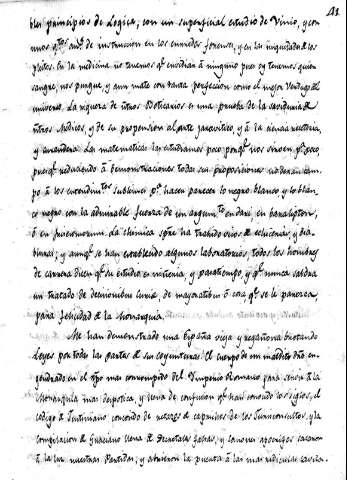 41
bles principios de Logica, con un superficial estudio de Vinio, y con
unos qtos. ans. de instruccion en los enrredos forenses, y en las iniquidades de los
pleitos. En la medicina no tenemos qe. envidiar á ninguno pues oy tenemos quien
sangre, nos purgue, y aun mate con tanta perfeccion como el mejor Verdugo del
universo. La riqueza de ntros Boticarios es una prueba de la sabiduria de
ntros Medicos, y de su propension al arte jaropistico, y á la ciencia recetaria,
y curandera. Las matematicas las estudiamos poco porqe. nos sirven qe. poco,
pues qe. reduciendo á demonstraciones todas sus proposiciones no dexan cam-
po á los entendimtos. sublimes pa. hacer parecer lo negro blanco y lo blan-
co negro con la admirable fuerza de un argumto. en darii, en baralipton,
ó en frisesomorum. La chimica spre ha trahido visos de echiceria, y dia-
blura; y aunqe. se han establecido algunos laboratorios, todos los hombres
de carrera dicen qe. su estudio es niñeria, y pasatiempo, y qe. nunca saldra
un tratado de decimonibus Curiæ, de mayoratibus ó cosa qe. se le parezca,
para felicidad de la Monarquia.
Me han demonstrado una España vieja y regañona brotando
Leyes por todas las partes de sus coyunturas. El cuerpo de un maldito dro en-
gendrado en el tipo mas corrompido del Imperio Romano para servir á la
Monarquia mas despotica, y llena de confusion qe. han conocido los siglos, el
codigo de Justiniano concordo de retazos de caprichos de los Jurisconsultos, y la
compilacion de Graciano llena de Decretales falsas, y canones apocrifos sacaron
á la luz nuestras Partidas, y abrieron la puerta á las mas ridiculas cavila-